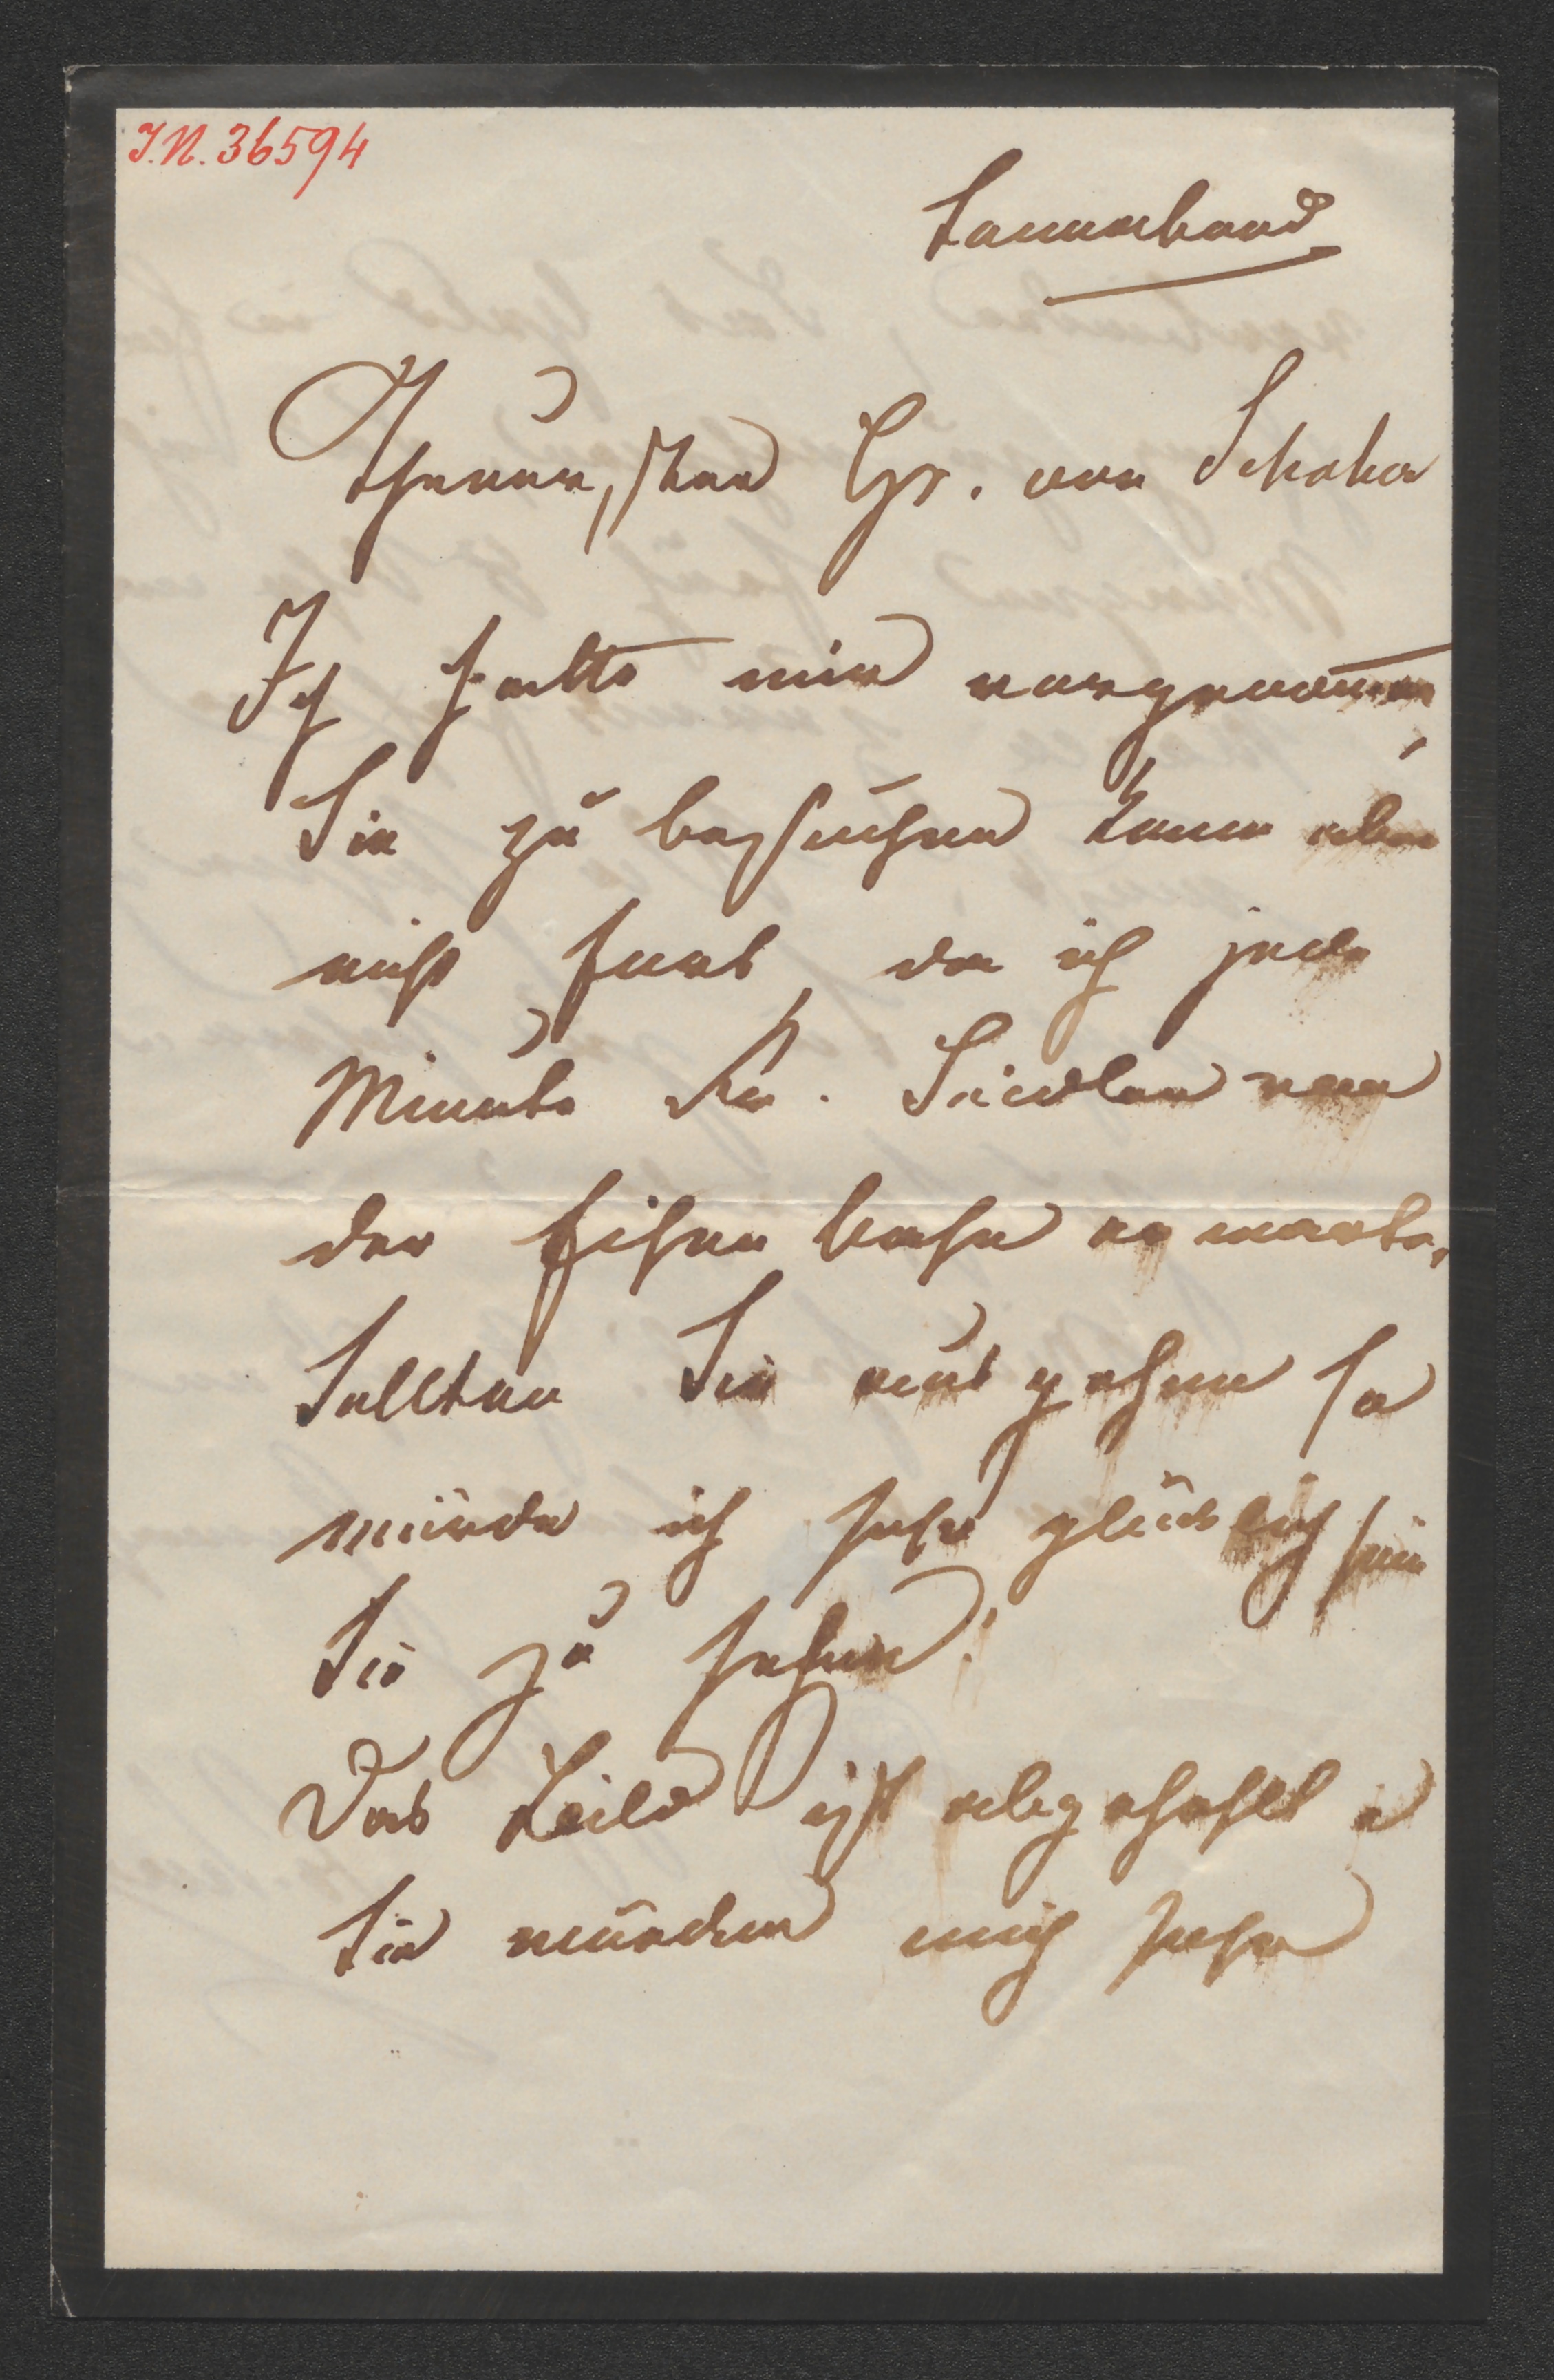 I.N. 36594
Sonnabend
Theuerster Hr. von Schober
Ich hatte mir vorgenomen
Sie zu besuchen kann aber
nicht fort, da ich jede
Minute Dr. Seidler von
der Eisenbahn erwarte,
Sollten Sie ausgehen so
würde ich sehr glücklich sein
Sie zu sehen!
Das Leild ist abgehohlt u
Sie würden mich sehr